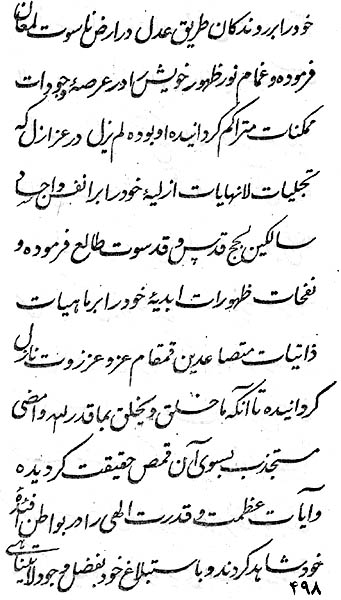 خود را بر روندگان طریق عدل در ارض ناسوت لمعان
فرموده و غمام نور ظهور خویش را در عرصهٔ وجودات
ممکنات متراکم گردانیده او بوده لم یزل در عز ازل که
تجلیات لانهایات ازلیهٔ خود را بر انفس و اجساد
سالکین لجج قدس و قدسوت طالع فرموده و
نفحات ظهورات ابدیهٔ خود را بر ماهیات
ذاتیات متصاعدین قمقام عز و عززوت نازل
گردانیده تا آنکه ما خلق و یخلق بما قدر الله و امضی
مستجذب بسوی آن قمص حقیقت گردیده
و آیات عظمت و قدرت الهی را در بواطن افئدهٔ
خود شاهد گردند و باستبلاغ خود بفضل وجود لایتناهی
۴۹۸